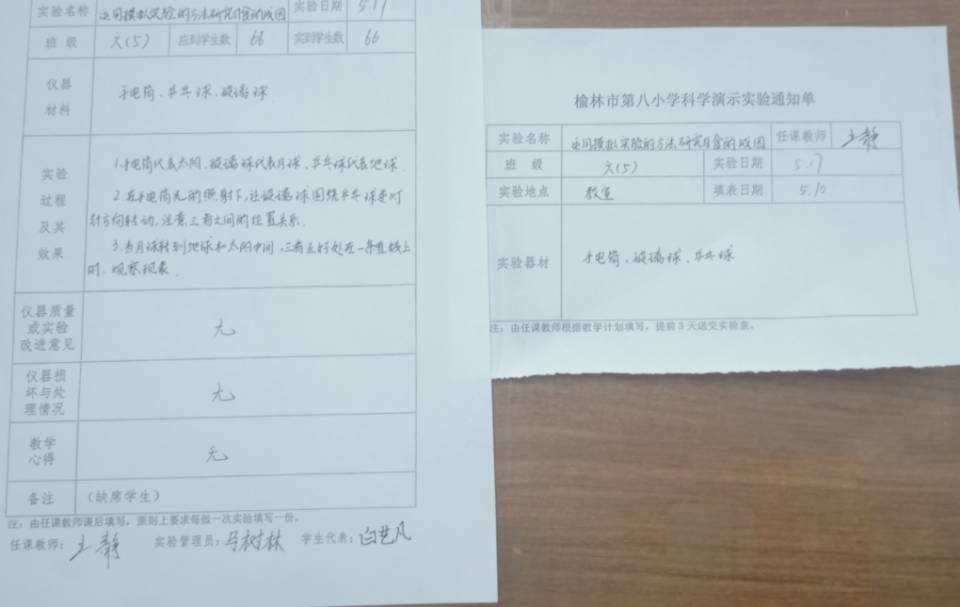 实验名称 运用模拟实验的方法研究日食的成因 实验日期 5.17
班级 六(5) 应到学生数 66 实到学生数 66
仪器材料 手电筒、乒乓球、玻璃球
实验过程及其效果
1.手电筒代表太阳、玻璃球代表月球、乒乓球代表地球.
2.在手电筒光的照射下,让玻璃球围绕乒乓球逆时
针方向转动,注意三者之间的位置关系.
3.当月球转到地球和太阳中间,三者正好处在一条直线上
时,观察现象.
仪器质量或实验改进意见 无
仪器损坏与处理情况 无
教学心得 无
备注 (缺席学生)
注:由任课教师课后填写,原则上要求每做一次实验填写一份。
任课教师:王静 实验管理员:马树林 学生代表:白艺凡
榆林市第八小学科学演示实验通知单
实验名称 运用模拟实验的方法研究日食的成因 任课教师 王静
班级 六(5) 实验日期 5.17
实验地点 教室 填表日期 5.10
实验器材 手电筒、玻璃球、乒乓球
注:由任课教师根据教学计划填写,提前3天送交实验室。